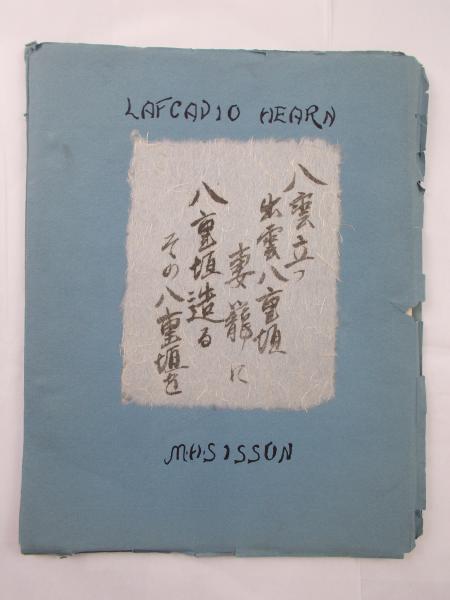 LAFCADIO HEARN
八雲立つ
出雲八重垣
妻籠に
八重垣造る
その八重垣を
M.A.SISSON